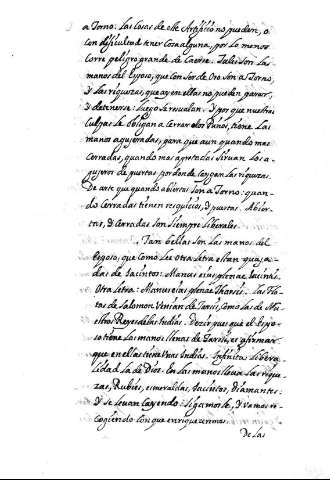 a Torno. las Cosas de este Artificio no pueden, o
con dificultad tener Cosa alguna, por lo menos
corre peligro grande de Caerse. Tales son las
manos del Esposo, que con ser de Oro son a Torno,
y las riquezas, que ay en ellas no pueden parar,
y detenerse: luego se resvalan. Y por que nuestras
Culpas le obligan a Cerrar los Puños, tiene las
manos agujeradas, para que aun quando mas
cerradas, quando mas apretadas sirvan los a-
gujeros de puertas por donde Caygan las riquezas.
De arte que quando abiertas son a Torno: quan-
do Cerradas tienen resquicios, y puertas. Abier-
tas, y Cerradas son siempre liberales.
Tan bellas son las manos del
Esposo, que como lee otra letra estan quaja-
das de Jacintos: Manus eius plenae Iacintis.
Otra letra: Manus eius plenae Tharsis. las Flo-
tas de Salomon Venian de Tarsis, como las de Nu-
estros Reyes de las Indias. Dezir pues que el Espo-
so tiene las manos llenas de Tarsis, es afirmar
que en ellas tiene Unas Indias. Infinita libera-
lidad la de Dios. En las manos lleva las rique-
zas, Rubies, esmeraldas, Jacintos, Diamantes:
y se le van Cayendo: sigamosle, y vamos re-
cogiendo con que enriquezernos.
De las